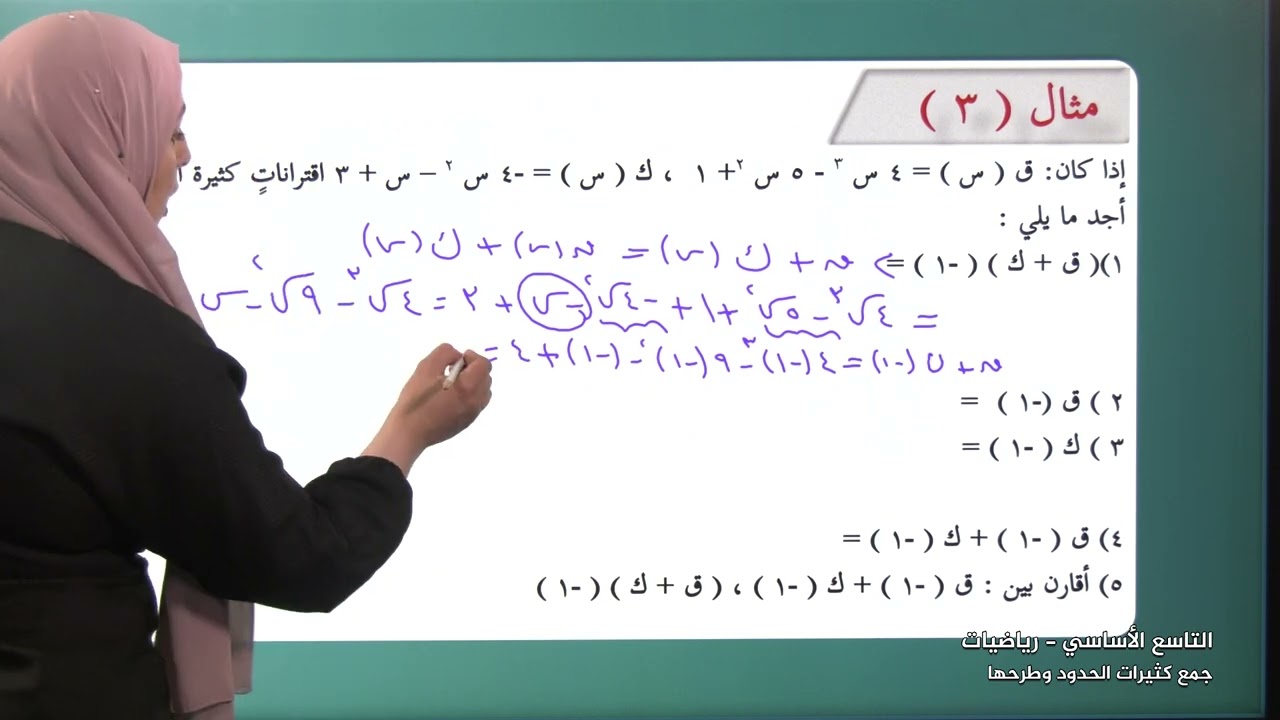 مثال ( ٣ )
إذا كان: ق ( س ) = ٤ س ٣ - ٥ س ٢ + ١ ، ك ( س ) = -٤ س ٢ – س + ٣ اقتراناتٍ كثيرة
أجد ما يلي :
ق + ك (س) = ق(س) + ك (س)
١)( ق + ك ) ( -١ ) =
= ٤س٣ - ٥س٢ + ١ + -٤س٢ - س + ٣ = ٤س٣ - ٩س٢ - س
ق + ك (-١) = ٤(-١)٣ - ٩(-١)٢ - (-١) + ٤ =
٢ ) ق (-١ ) =
٣ ) ك ( -١ ) =
٤) ق ( -١ ) + ك ( -١ ) =
٥) أقارن بين : ق ( -١ ) + ك ( -١ ) ، ( ق + ك ) ( -١ )
التاسع الأساسي - رياضيات
جمع كثيرات الحدود وطرحها